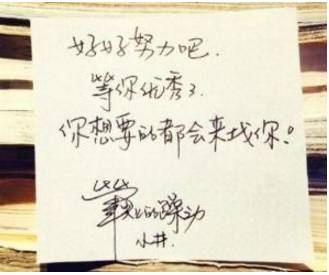 好好努力吧.
等你优秀了.
你想要的都会来找你!
上的躁动
小井.